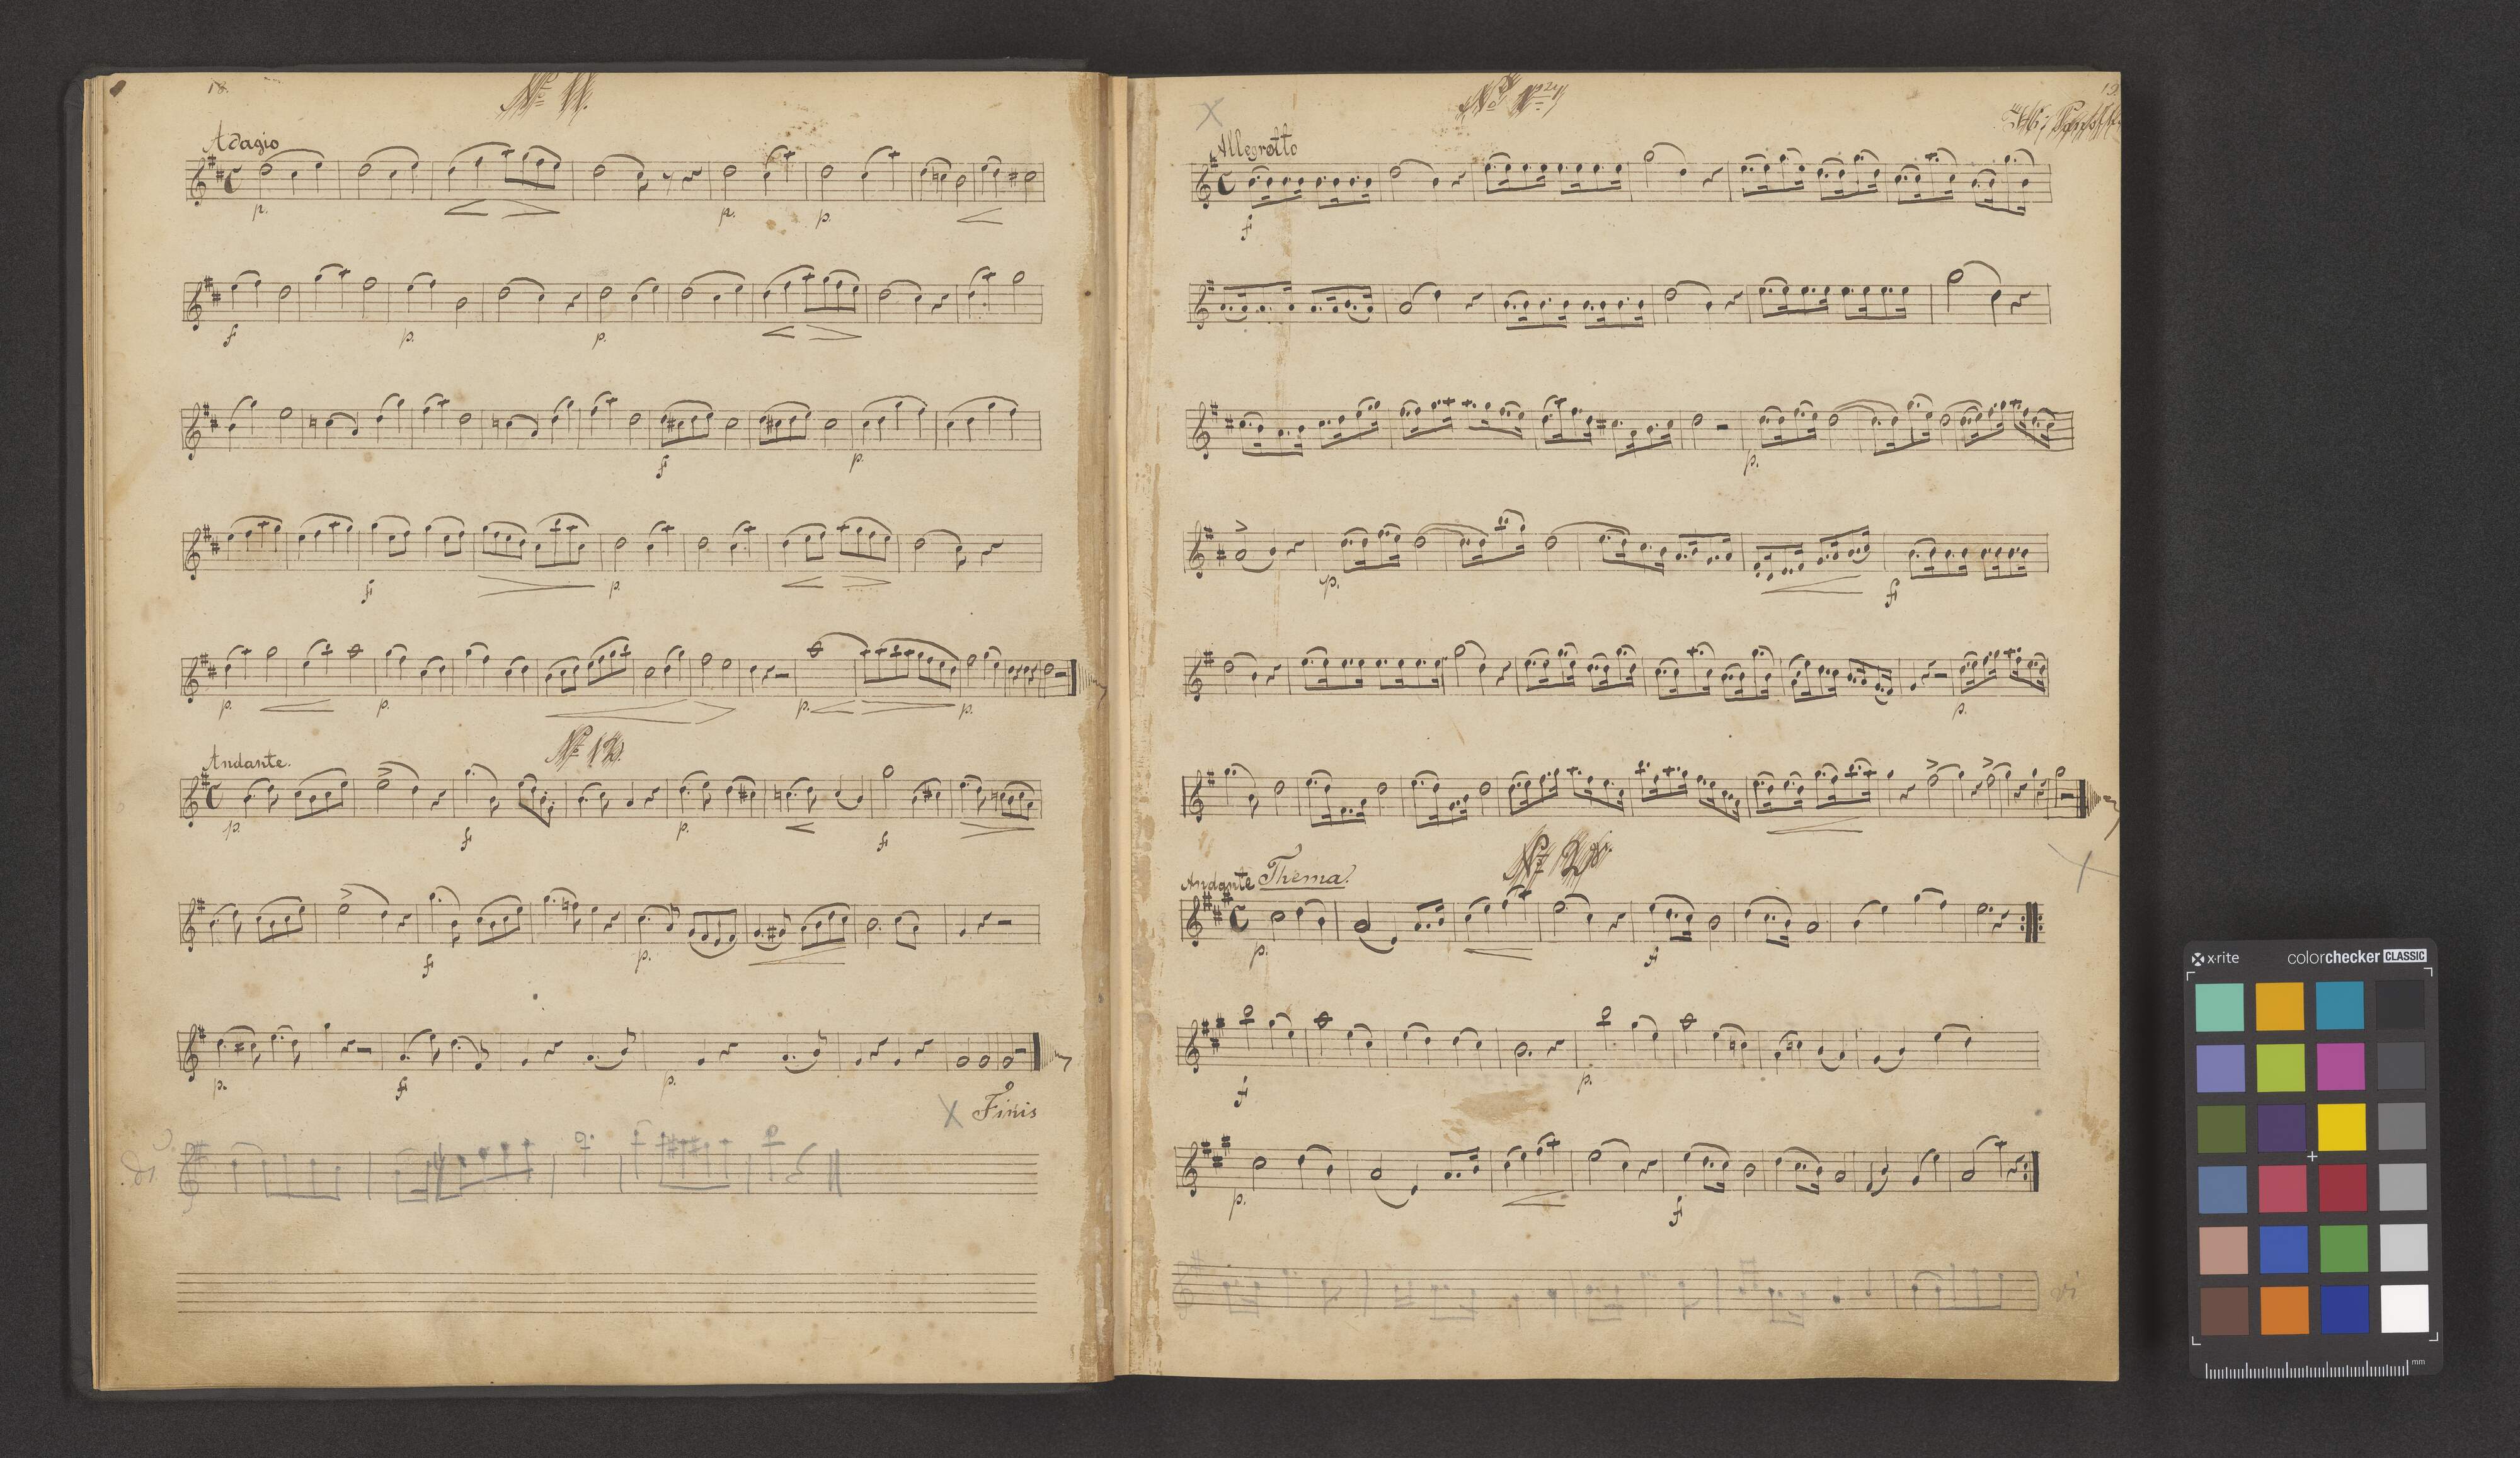 18.
№ 11.
Adagio
p. p. p.
f p. p.
f p.
f p.
p. p. p. p.
№ 12.
Andante.
p. f p. f
f p.
p. f p.
Finis
19.
Allegretto
f
p.
p. f
p.
Andante Thema.
p. f
f p.
p. f
x·rite colorchecker CLASSIC
mm